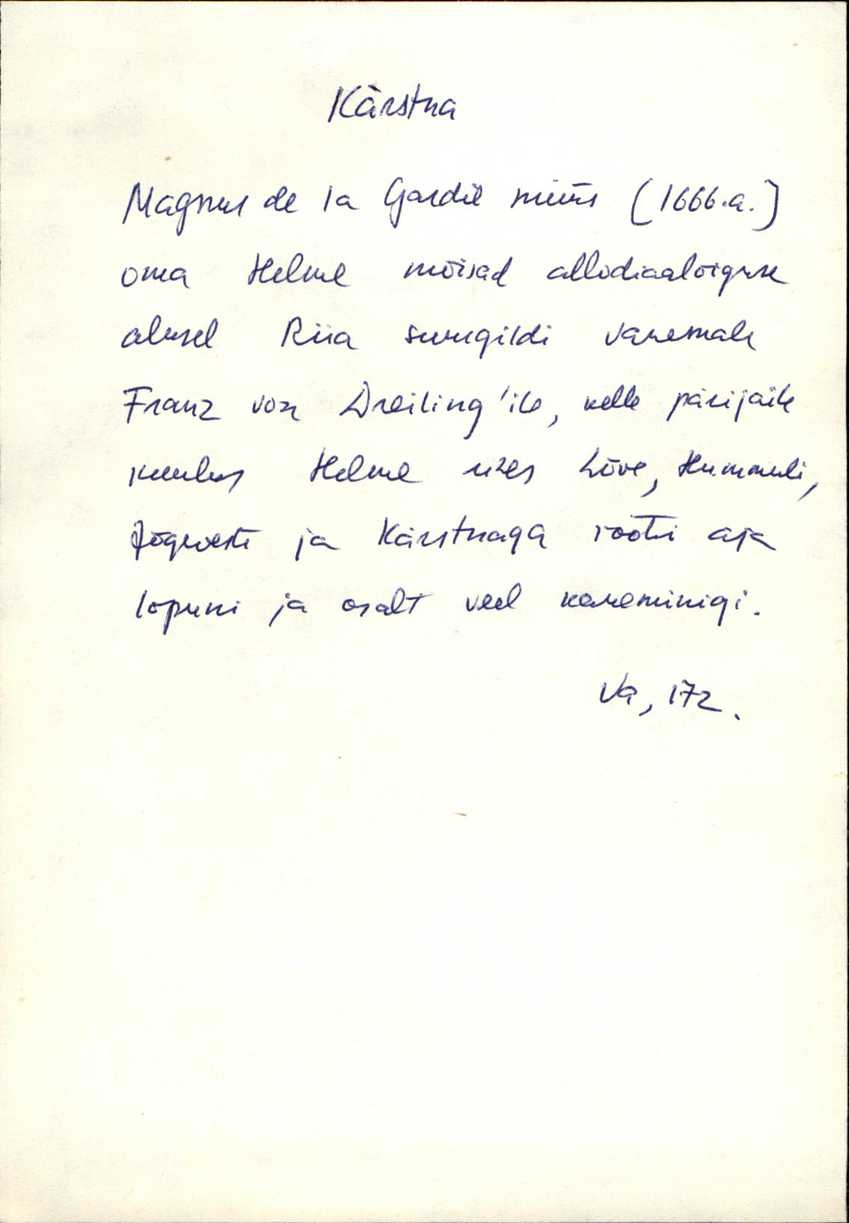 Kärstna
Magnus de la Gardie müüs (1666.a.)
oma Helme mõisad allodiaalõiguse
alusel Riia suurgildi vanemale
Franz von Dreiling'ile, kelle pärijaile
kuulus Helme ühes Lõve, Hummuli,
Jõgeveste ja Kärstnaga rootsi aja
lõpuni ja osalt veel hareminigi.
Va, 172.